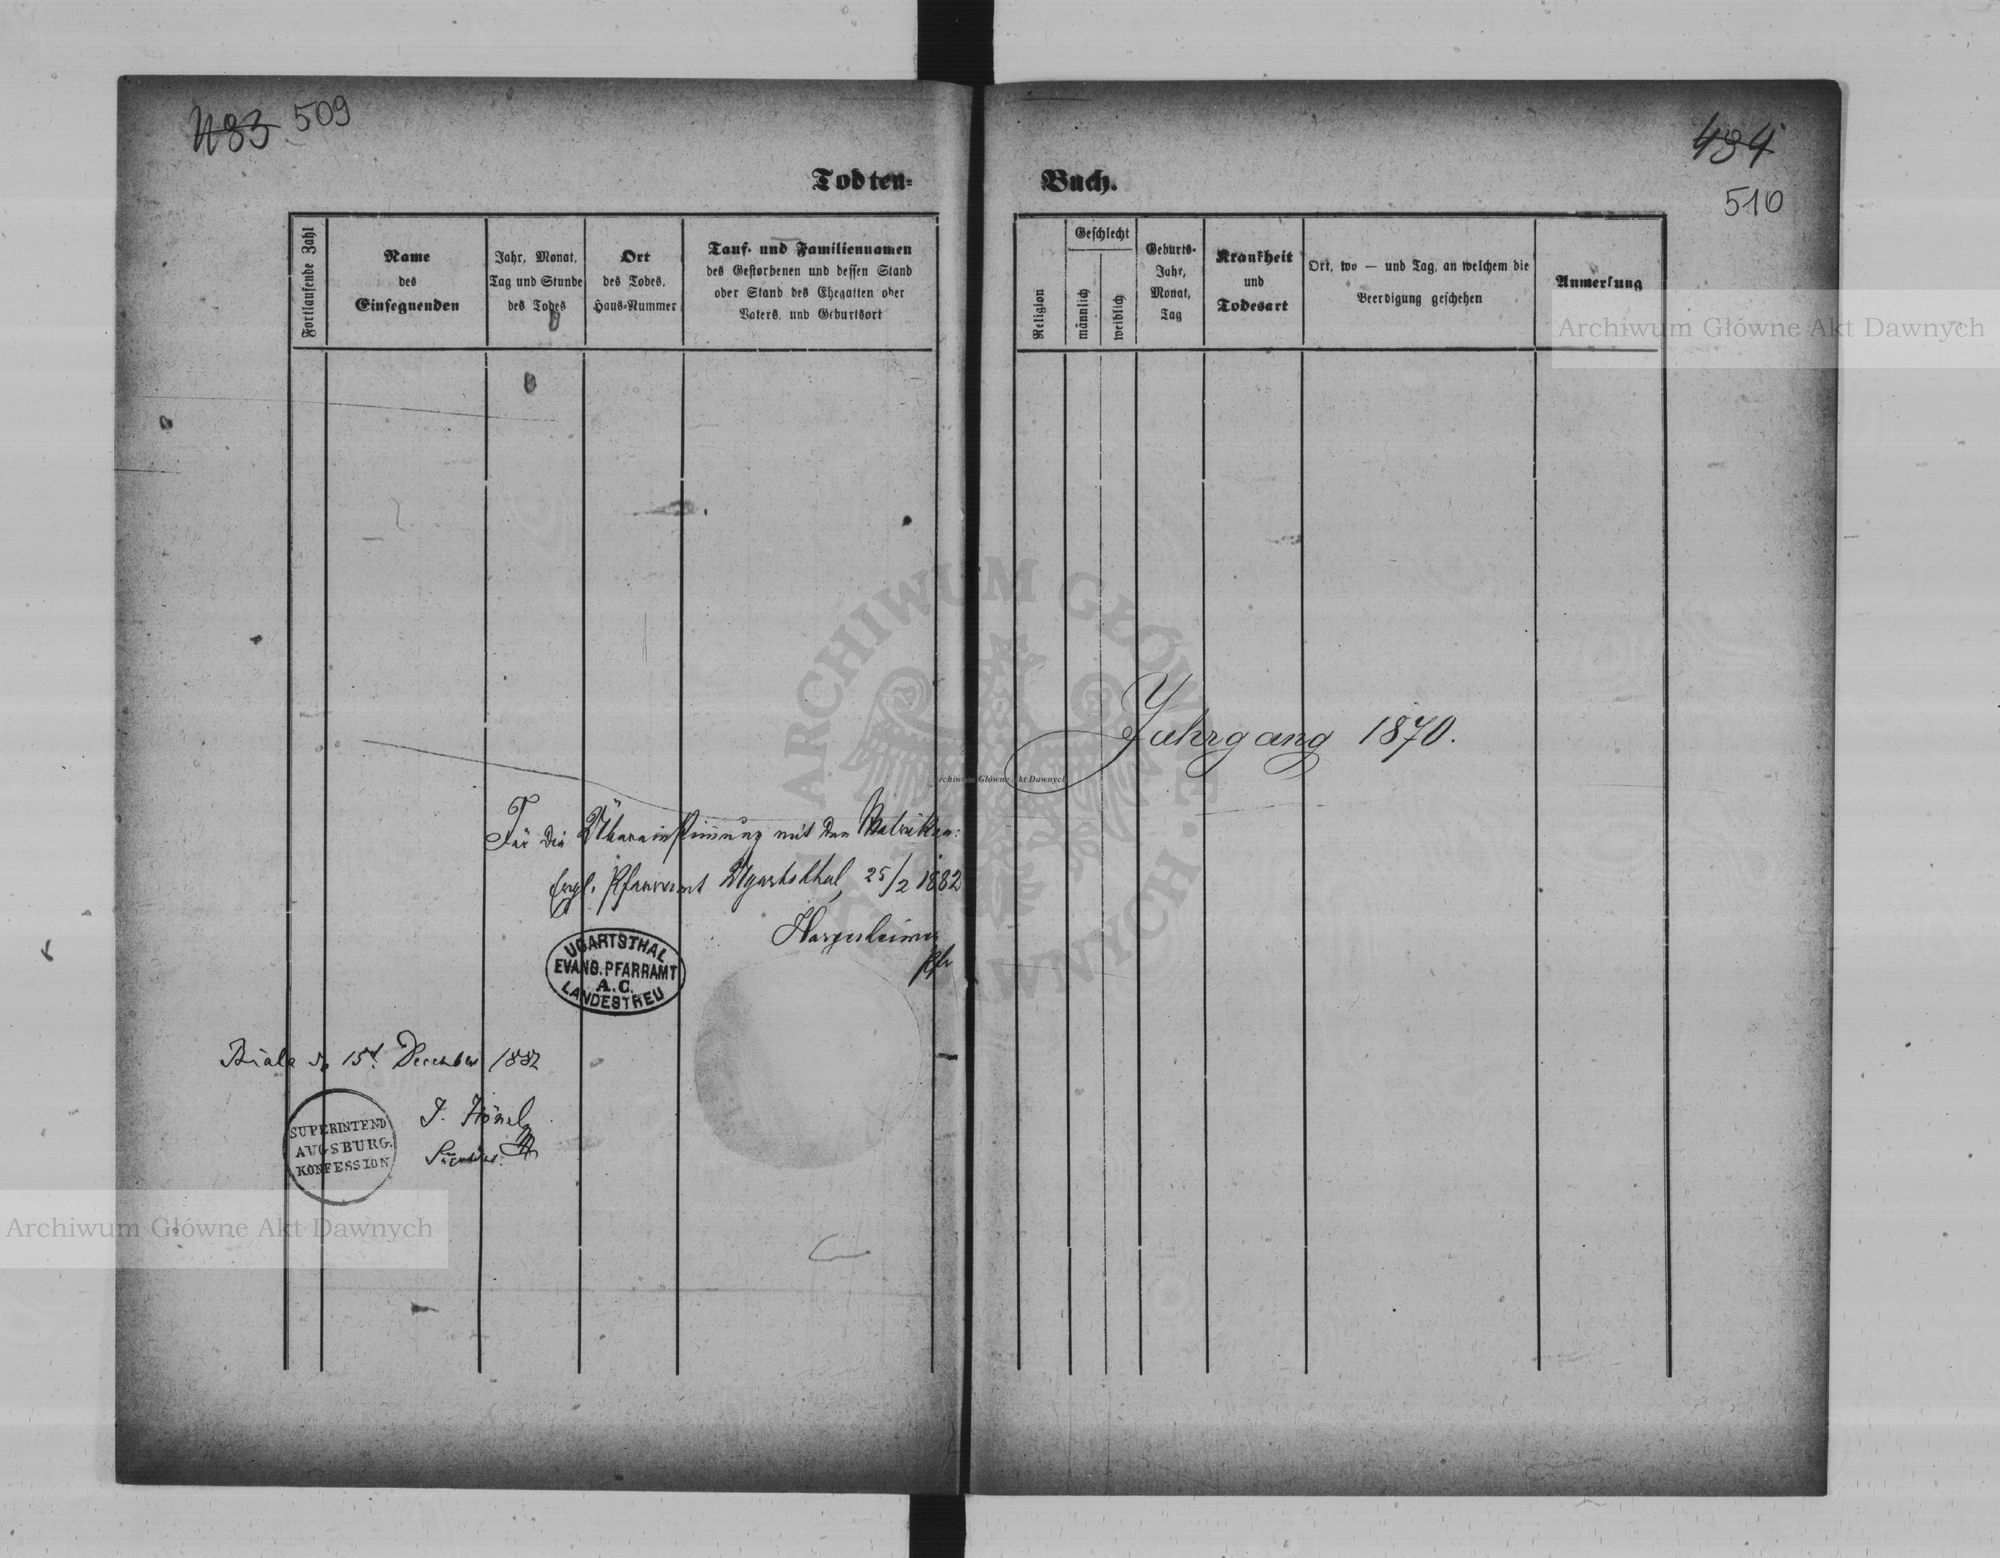 483 509
Todten-
Fortlaufende Zahl
Name
des
Einsegnenden
Jahr, Monat,
Tag und Stunde
des Todes
Ort
des Todes,
Haus-Nummer
Tauf- und Familiennamen
des Gestorbenen und dessen Stand
oder Stand des Ehegatten oder
Vaters, und Geburtsort
Für die Übereinstimmung mit den Matriken:
Evgl. Pfarramt Ugartsthal, 25/2 1882
Hargesheimer
Pfr
UGARTSTHAL
EVANG. PFARRAMT
A. C.
LANDESTREU
Biala d. 15t. December 1882
J. Hönel
SUPERINTEND
AUGSBURG.
KONFESSION
484
510
Buch.
Religion
Geschlecht
männlich
weiblich
Geburts-
Jahr,
Monat,
Tag
Krankheit
und
Todesart
Ort, wo — und Tag, an welchem die
Beerdigung geschehen
Anmerkung
Jahrgang 1870.
Archiwum Główne Akt Dawnych
Archiwum Główne Akt Dawnych
Archiwum Główne Akt Dawnych
ARCHIWUM GŁÓWNE AKT DAWNYCH